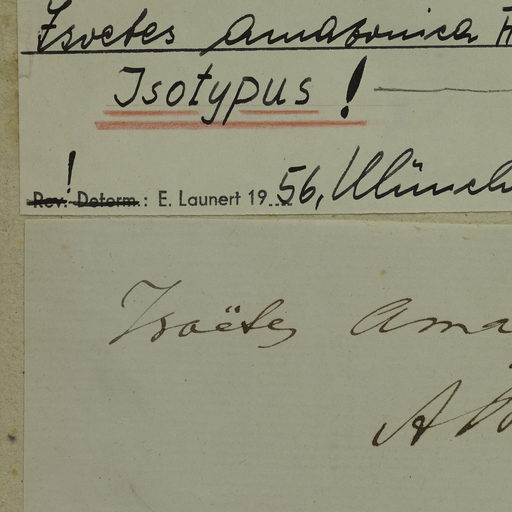 Isoetes amazonica
Isotypus !
!
Rev. Determ.: E. Launert 19 56, München
Isoëtes Ama
A